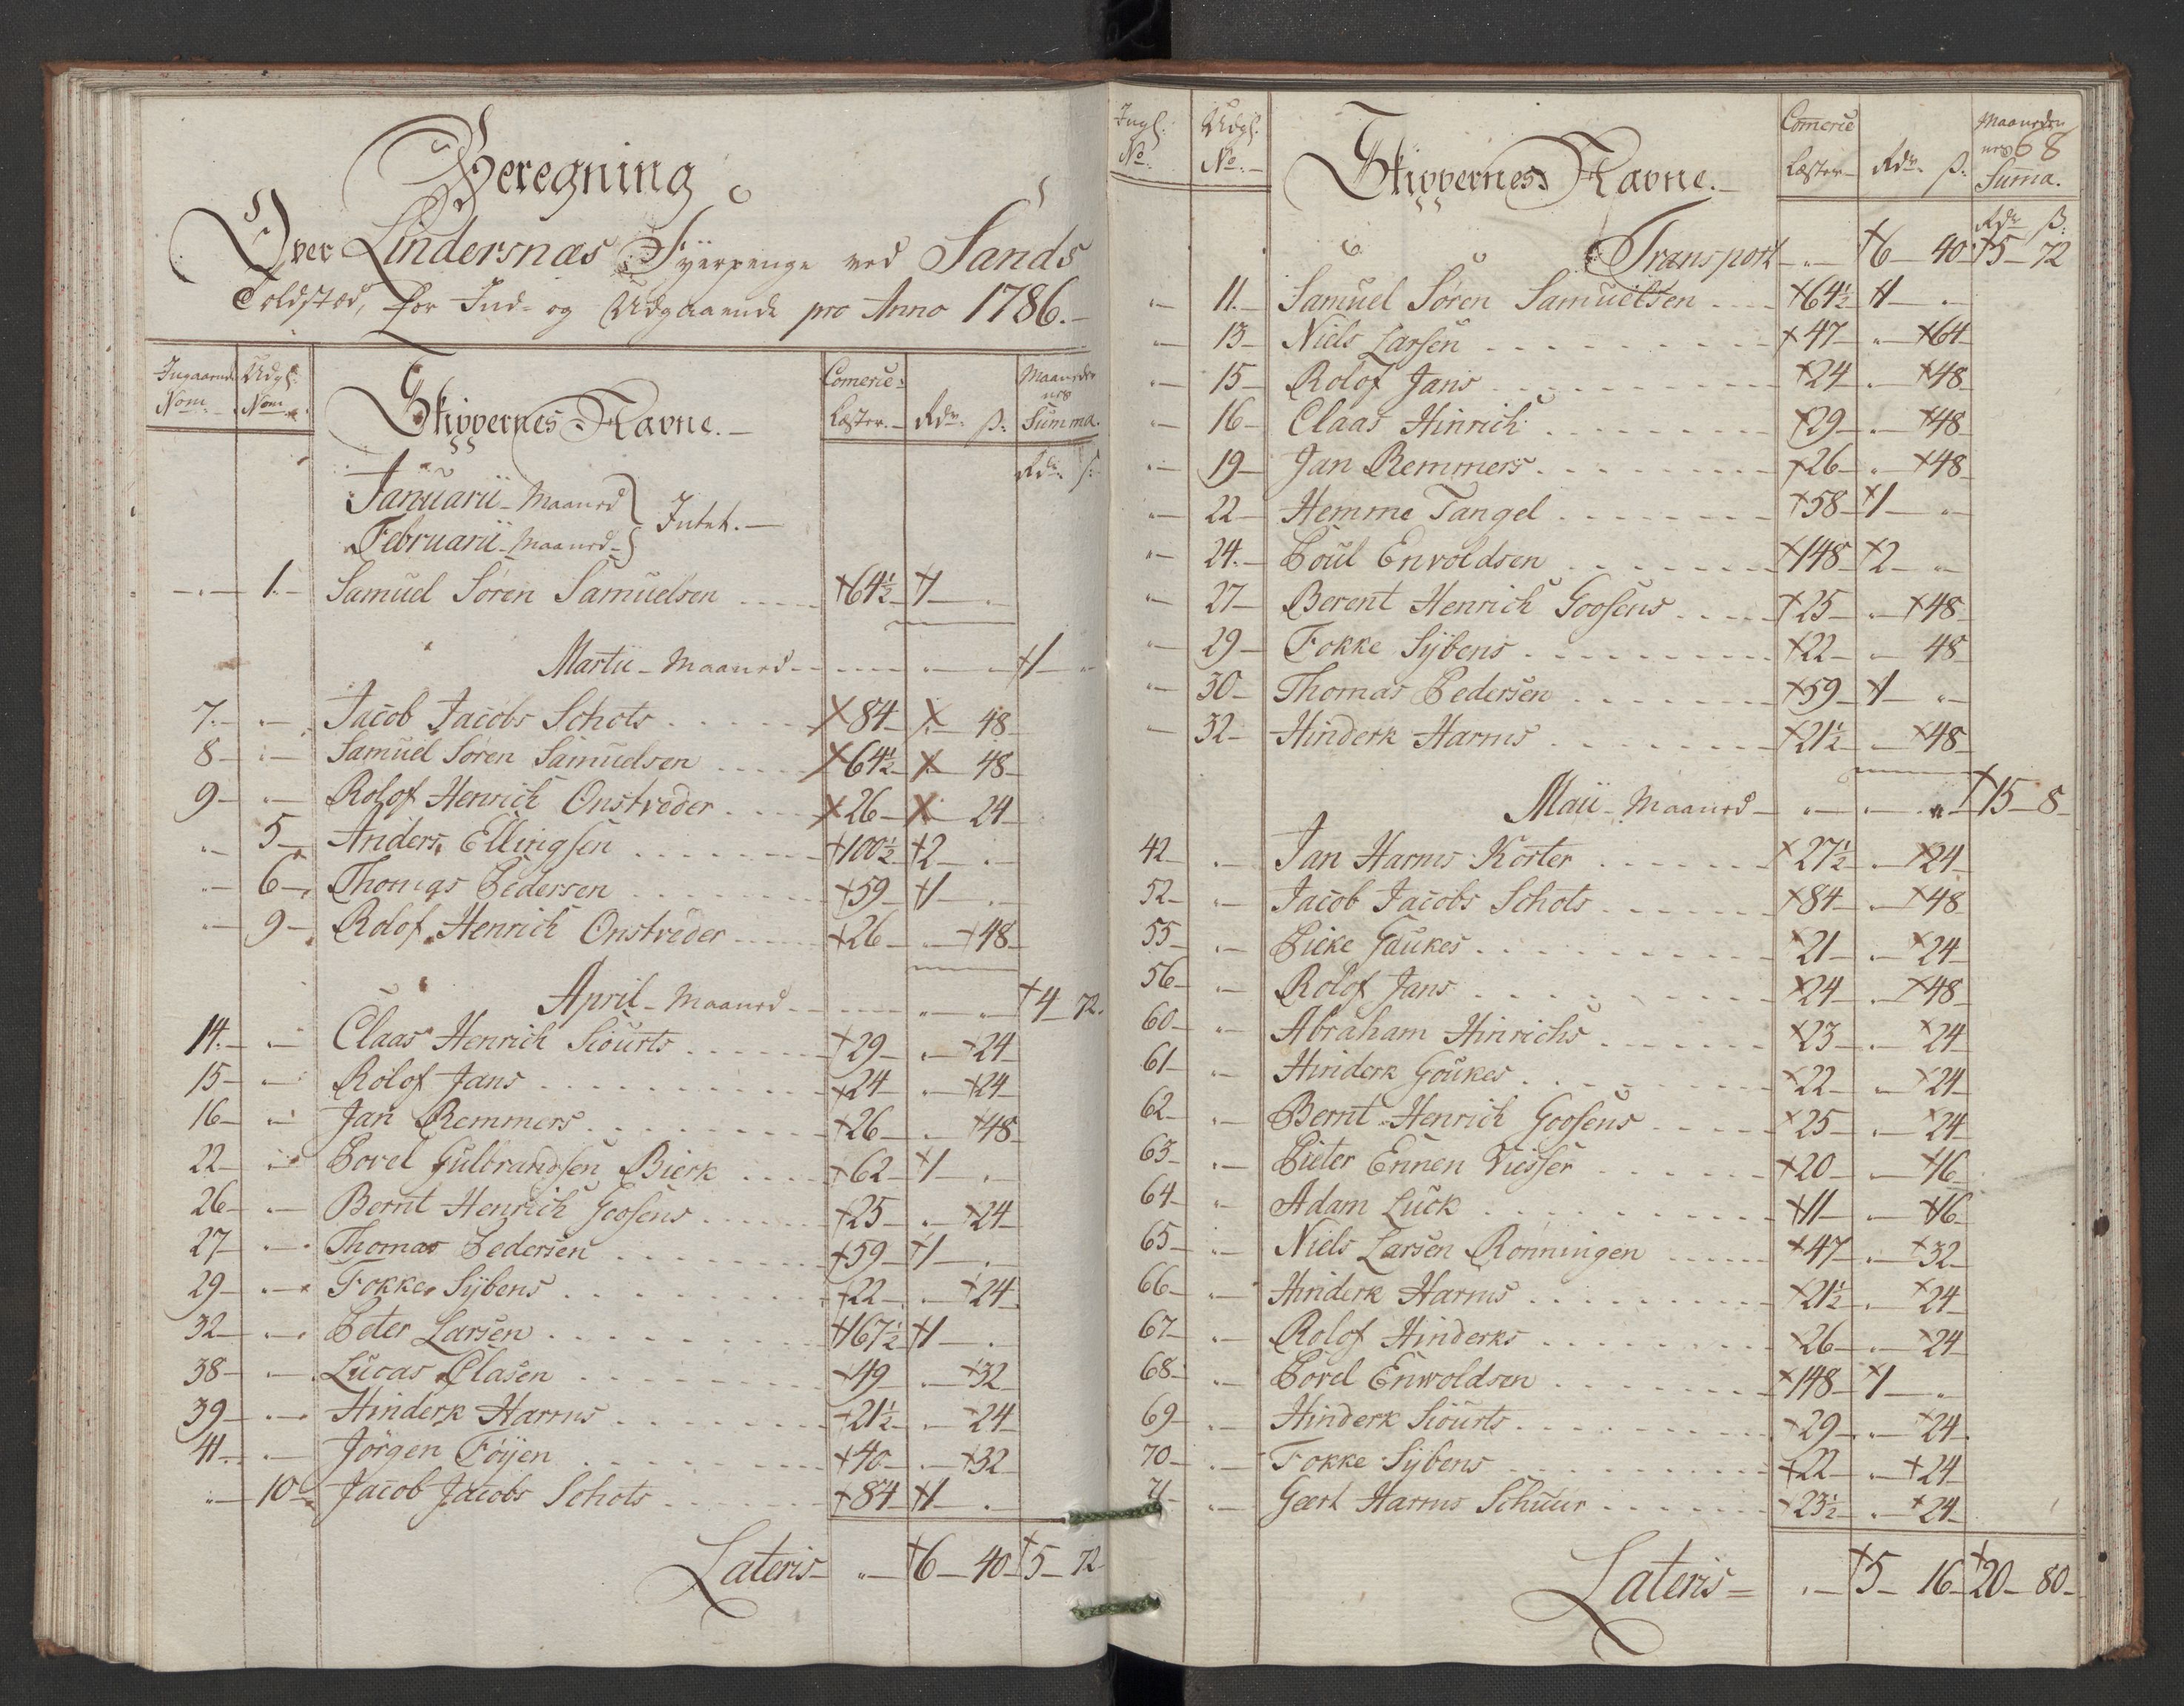 Beregning
Over Lindersnæs Fyerpenge ved Sands
Toldstæd, for Ind- og Udgaaende pro Anno 1786.-
Ingaaende Nom. Udg: Nom. Skippernes Navne.- Comerce Læster.- Rdr. ß: Maanedernes Summa.
Rdr. ß:
Januarii - Maaned } Intet.-
Februarii - Maaned - }
„ 1.- Samuel Søren Samuelsen 64½ 1 - „
Martii - Maaned - 1 - „
7.- „ Jacob Jacobs Schots 84 „ 48
8 - „ Samuel Søren Samuelsen 64½ „ 48
9 - „ Rolof Henrich Onstreder 26 - „ 24
„ 5 - Anders Ellingsen 100½ 2 - „
„ 6 - Thomas Pedersen 59 - 1 - „
„ 9 - Rolof Henrich Onstreder 26 - „ 48
April - Maaned - 4 - 72.
14.- „ Claas Henrich Siourts 29 - „ 24
15 - „ Rolof Jans 24 - „ 24
16 - „ Jan Remmers 26 - „ 48
22 - „ Povel Gulbrandsen Bierk 62 - 1 - „
26 - „ Bernt Henrich Goosens 25 - „ 24
27 - „ Thomas Pedersen 59 - 1 - „
29 - „ Fokke Sÿbens 22 - „ 24
32 - „ Peter Larsen 167½ 1 - „
38 - „ Lucas Clasen 49 - „ 32
39 - „ Hinderk Harms 21½ - „ 24
41 - „ Jörgen Föÿen 40 - „ 32
„ 10 - Jacob Jacobs Schots 84 1 - „
Lateris - „ 6 - 40 5 - 72
68
Ingl: No. Udgl: No.- Skippernes Navne.- Comerce Læster - Rdr. ß: Maanedernes Summa.
Rdr ß:
Transport - „ 6 - 40 5 - 72
„ 11.- Samuel Søren Samuelsen 64½ 1 - „
„ 13 - Niels Larsen 47 - „ 64
„ 15 - Rolof Jans 24 - „ 48
„ 16 - Claas Hinrich 29 - „ 48
„ 19 - Jan Remmers 26 - „ 48
„ 22 - Hemme Tangel 58 - 1 - „
„ 24.- Poul Envoldsen 148 - 2 - „
„ 27 - Berent Henrich Goosens 25 - „ 48
„ 29 - Fokke Sÿbens 22 - „ 48
„ 30 - Thomas Pedersen 59 - 1 - „
„ 32 - Hinderk Harms 21½ - „ 48
Maii - Maaned - „ „ 15 - 8
42 - „ Jan Harms Korter 27½ - „ 24
52 - „ Jacob Jacobs Schots 84 - „ 48
55 - „ Picke Gaukes 21 - „ 24
56 - „ Rolof Jans 24 - „ 48
60 - „ Abraham Hinrichs 23 - „ 24
61 - „ Hinderk Goukes 22 - „ 24
62 - „ Bernt Henrich Goosens 25 - „ 24
63 - „ Pieter Ennen Viesser 20 - „ 16
64 - „ Adam Luck 11 - „ 16
65 - „ Niels Larsen Rønningen 47 - „ 32
66 - „ Hinderk Harms 21½ - „ 24
67 - „ Rolof Hinderks 26 - „ 24
68 - „ Povel Enwoldsen 148 - 1 - „
69 - „ Hinderk Siourts 29 - „ 24
70 - „ Fokke Sÿbens 22 - „ 24
71 - „ Geert Harms Schuur 23½ - „ 24
Lateris = „ 5 - 16 20 - 80